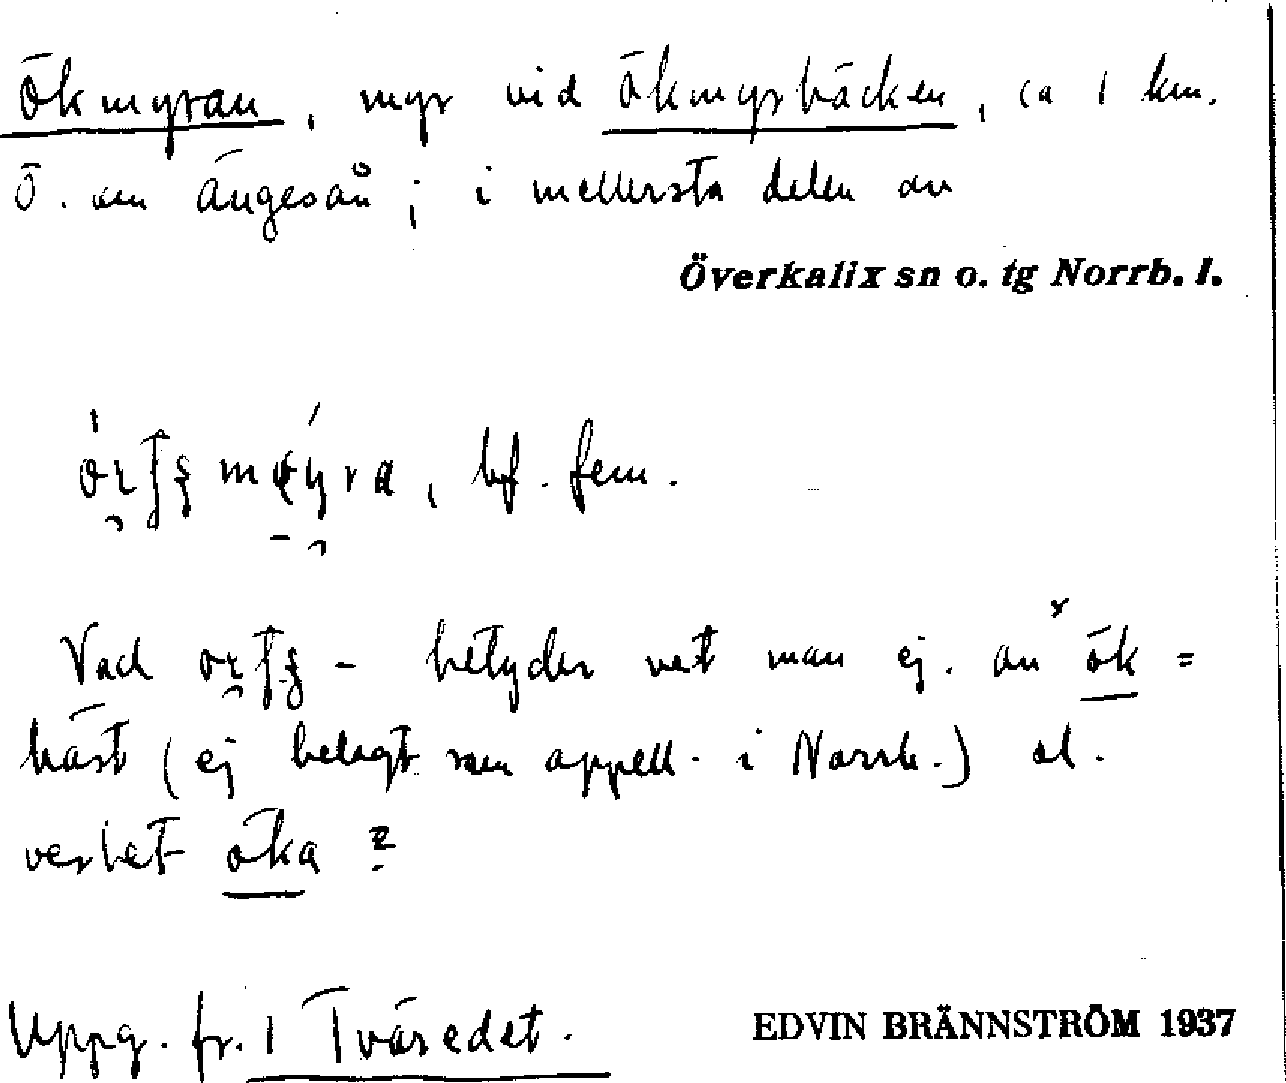 Ökmyran, myr vid Ökmyrbäcken, ca 1 km.
Ö. om Ängesån; i mellersta delen av
Överkalix sn o. tg Norrb. l.
bf. fem.
Vad betyder vet man ej. ök =
häst (ej belagt som appell. i Norrb.) el.
verbet öka?
Uppg. fr. 1 Tväredet.
EDVIN BRÄNNSTRÖM 1937